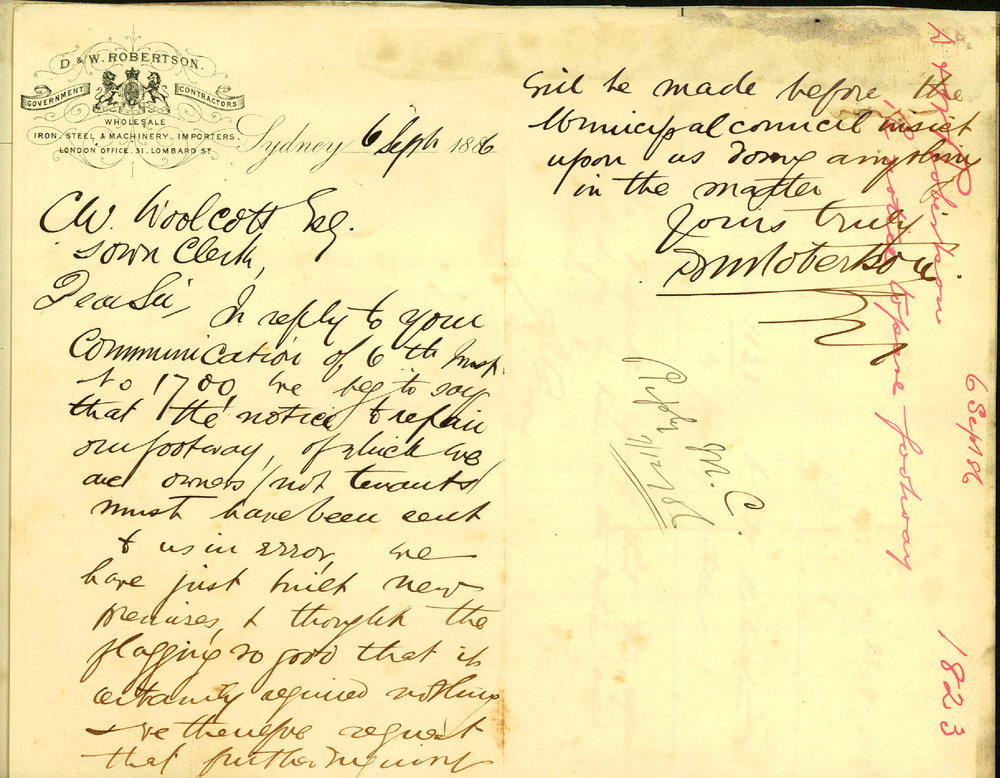 D. & W. ROBERTSON.
GOVERNMENT CONTRACTORS
WHOLESALE
IRON, STEEL & MACHINERY, IMPORTERS.
LONDON OFFICE. 31. LOMBARD ST
Sydney 6 Septr 1886
C.W. Woolcott Esq.
Town Clerk,
Dear Sir, In reply to your
Communication of 6th Inst.
No 1700, we beg to say
that the notice to repair
our footway, of which we
are owners (not tenants)
must have been sent
to us in error, we
have just built new
premises, & thought the
flagging so good that it
certainly required nothing
we therefore request
that further inquiry
will be made before the
Municipal council insist
upon us doing anything
in the matter
Yours truly
D & W Robertson
Reply M.C.
D & W Robertson
notice to pave footway
6 Sept 86
1823